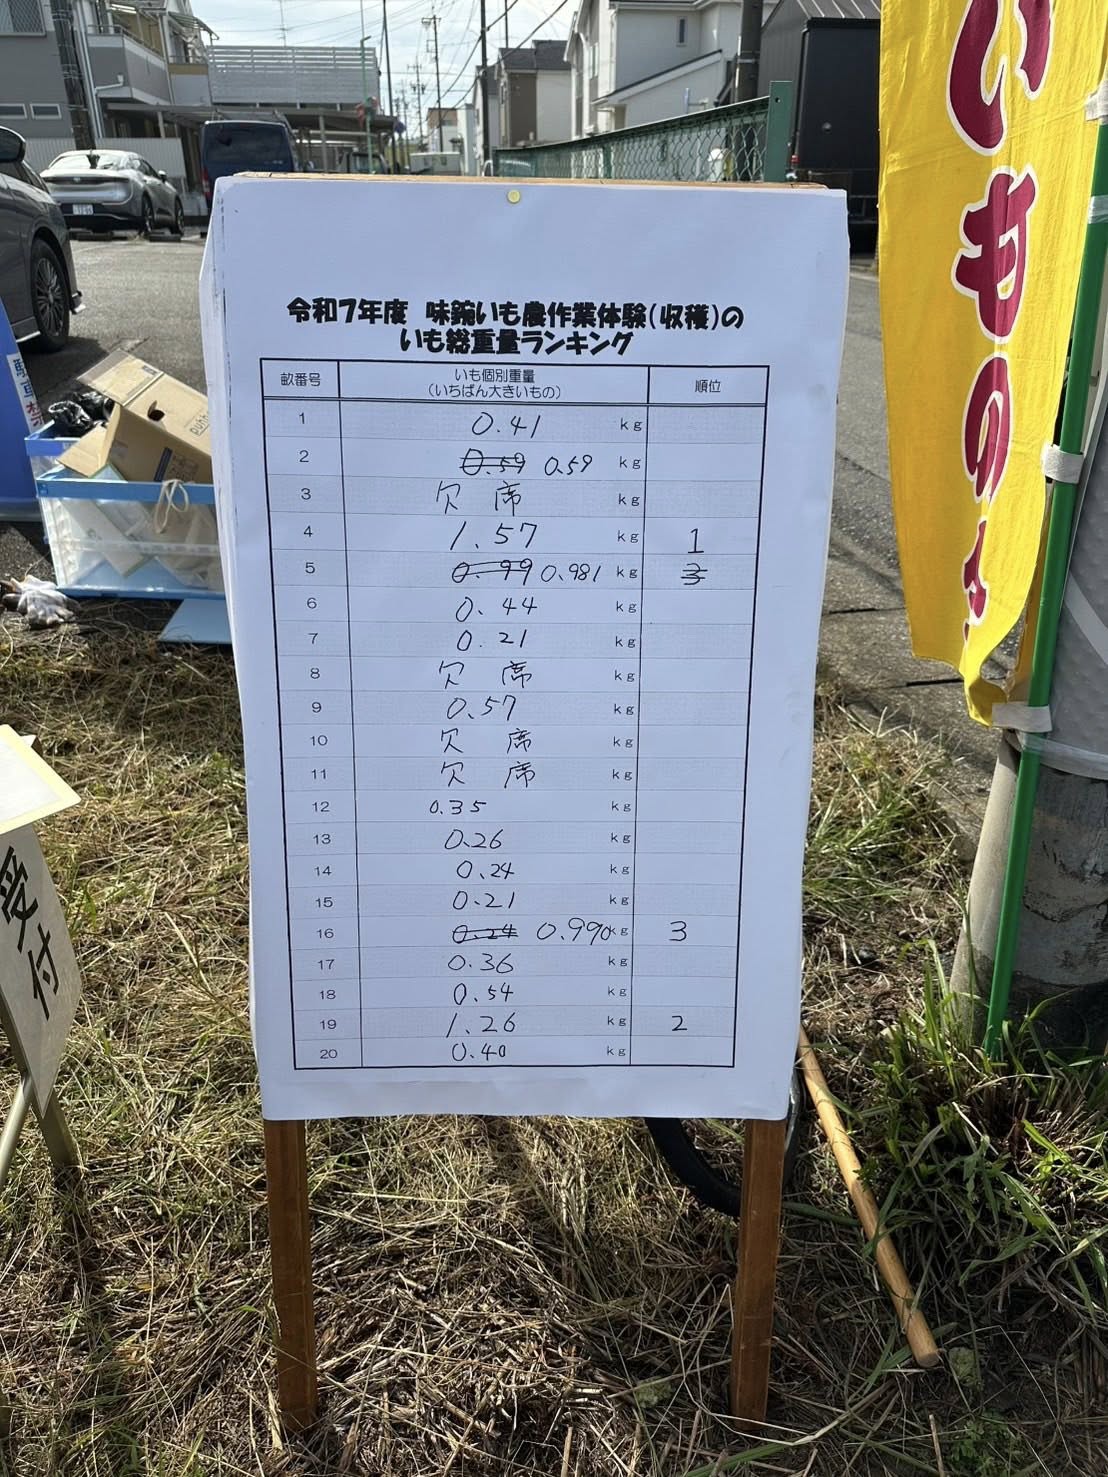 令和7年度 味鋺いも農作業体験(収穫)の
いも総重量ランキング
畝番号 いも個別重量 (いちばん大きいもの) 順位
1 0.41 kg
2 0.59 0.59 kg
3 欠席 kg
4 1.57 kg 1
5 0.99 0.981 kg 3
6 0.44 kg
7 0.21 kg
8 欠席 kg
9 0.57 kg
10 欠席 kg
11 欠席 kg
12 0.35 kg
13 0.26 kg
14 0.24 kg
15 0.21 kg
16 0.24 0.990kg 3
17 0.36 kg
18 0.54 kg
19 1.26 kg 2
20 0.40 kg
受付
いもの